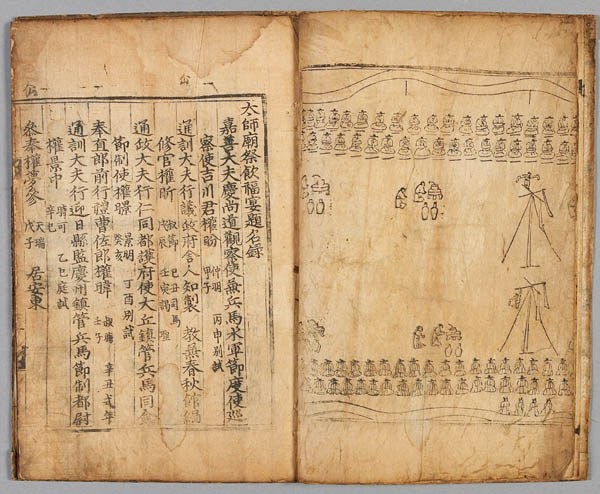 太師廟祭飮福宴題名錄
嘉善大夫慶尙道觀察使兼兵馬水軍節度使巡
察使吉川君權盼 仲明 甲子 丙申別試
通訓大夫行議政府舍人知製 敎兼春秋館編
修官權昕
通政大夫行仁同都護府使大丘鎭管兵馬同僉
節制使權㬌 景明 癸亥 丁酉別試
奉直郞前行禮曹佐郞權暐 叔晦 壬子 辛丑式年
通訓大夫行迎日縣監慶州鎭管兵馬節制都尉
權景中 時可 辛巳 乙巳庭試
參奉權夢參 天瑞 戊子 居安東